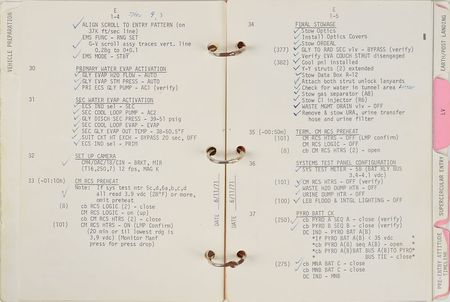 E
1-4
VEHICLE PREPARATION
ALIGN SCROLL TO ENTRY PATTERN (on
37K ft/sec line)
EMS FUNC - RNG SET
G-V scroll assy traces vert. line
0.28g to 0±0.1
EMS MODE - STBY
30 PRIMARY WATER EVAP ACTIVATION
GLY EVAP H2O FLOW - AUTO
GLY EVAP STM PRESS - AUTO
PRI ECS GLY PUMP - AC1 (verify)
31 SEC WATER EVAP ACTIVATION
ECS IND sel - SEC
SEC COOL LOOP PUMP - AC2
GLY DISCH SEC PRESS - 39-51 psig
SEC COOL LOOP EVAP - EVAP
SEC GLY EVAP OUT TEMP - 38-50.5°F
SUIT CKT HT EXCH - BYPASS 20 sec, OFF
ECS IND sel - PRIM
32 SET UP CAMERA
CM4/DAC/18/CIN - BRKT, MIR
(T16,250,7) 12 fps, MAG K
33 (-01:06) CM RCS PREHEAT
Note: If sys test mtr 5c,d,6a,b,c,d
all read 3.9 vdc (28°F) or more,
omit preheat
(8) cb RCS LOGIC (2) - close
CM RCS LOGIC - on (up)
cb CM RCS HTRS (2) - close
(101) CM RCS HTRS - ON (LMP Confirm)
(20 min or til lowest rdg is
3.9 vdc) (Monitor Manf
press for press drop)
DATE 6/11/71
E
1-5
34 FINAL STOWAGE
Stow Optics
Install Optics Covers
Stow ORDEAL
(377) GLY TO RAD SEC vlv - BYPASS (verify)
Verify EVA COUCH STRUT disengaged
(382) Cool pnl installed
Y-Y struts (2) extended
Stow Data Box R-12
Attach both strut unlock lanyards
Check for water in tunnel area
Stow gas separator (A8)
Stow Cl injector (R6)
WASTE MGMT DRAIN vlv - OFF
Remove & stow URA, urine transfer
hose and urine filter
35 (-00:50m) TERM. CM RCS PREHEAT
(101) CM RCS HTRS - OFF (LMP confirm)
CM RCS LOGIC - OFF
(8) cb CM RCS HTRS (2) - open
36 SYSTEMS TEST PANEL CONFIGURATION
SYS TEST METER - 5B (BAT RLY BUS
3.4-4.1 vdc)
(101) CM RCS HTRS - OFF (verify)
WASTE H2O DUMP HTR - OFF
URINE DUMP HTR - OFF
(100) LEB FLOOD & INTGL LIGHTING - OFF
37 PYRO BATT CK
(250) cb PYRO A SEQ A - close (verify)
cb PYRO B SEQ B - close (verify)
DC IND - PYRO BAT A(B)
*If PYRO BAT A(B) < 35 vdc *
*cb PYRO A(B) seq A(B) - open *
*cb PYRO A(B)BAT BUS A(B)TO PYRO*
* BUS TIE - close*
(275) cb MNA BAT C - close
cb MNB BAT C - close
DC IND - MNB
DATE 6/11/71
EARTH/POST LANDING
LV
SUPERCIRCULAR ENTRY
PRE-ENTRY ATTITUDE
TIMELINE